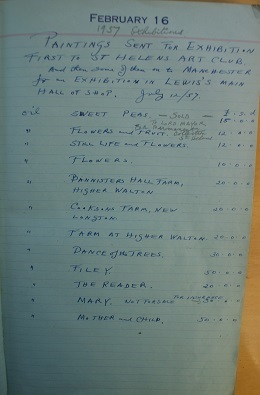 FEBRUARY 16
1957 Exhibitions
PAINTINGS SENT FOR EXHIBITION
FIRST TO ST HELENS ART CLUB.
And then some of them on to MANCHESTER
for an EXHIBITION IN LEWIS'S MAIN
HALL OF SHOP. July 12/57.
£ - s - d
oil SWEET PEAS. — SOLD — 15-0-0
" FLOWERS and FRUIT. 12-0-0
" STILL LIFE and FLOWERS. 12-0-0
" FLOWERS. 10-0-0
" BANNISTERS HALL FARM, 20-0-0
HIGHER WALTON.
" COOKSONS FARM, NEW 20-0-0
LONGTON.
" FARM AT HIGHER WALTON. 20-0-0
" DANCE of the TREES. 30-0-0
" TILEY 50-0-0
" THE READER. 20-0-0
" MARY. NOT FOR SALE 50-0-0
" MOTHER and CHILD. 30-0-0